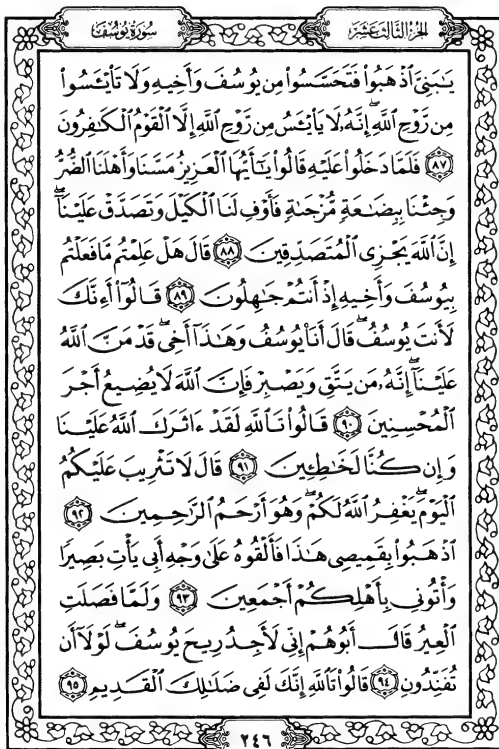 الجزء الثالث عشر
سورة يوسف
يَٰبَنِيَّ ٱذۡهَبُواْ فَتَحَسَّسُواْ مِن يُوسُفَ وَأَخِيهِ وَلَا تَاْيۡـَٔسُواْ
مِن رَّوۡحِ ٱللَّهِۖ إِنَّهُۥ لَا يَاْيۡـَٔسُ مِن رَّوۡحِ ٱللَّهِ إِلَّا ٱلۡقَوۡمُ ٱلۡكَٰفِرُونَ
٨٧ فَلَمَّا دَخَلُواْ عَلَيۡهِ قَالُواْ يَٰٓأَيُّهَا ٱلۡعَزِيزُ مَسَّنَا وَأَهۡلَنَا ٱلضُّرُّ
وَجِئۡنَا بِبِضَٰعَةٖ مُّزۡجَىٰةٖ فَأَوۡفِ لَنَا ٱلۡكَيۡلَ وَتَصَدَّقۡ عَلَيۡنَآۖ
إِنَّ ٱللَّهَ يَجۡزِي ٱلۡمُتَصَدِّقِينَ ٨٨ قَالَ هَلۡ عَلِمۡتُم مَّا فَعَلۡتُم
بِيُوسُفَ وَأَخِيهِ إِذۡ أَنتُمۡ جَٰهِلُونَ ٨٩ قَالُوٓاْ أَءِنَّكَ
لَأَنتَ يُوسُفُۖ قَالَ أَنَا۠ يُوسُفُ وَهَٰذَآ أَخِيۖ قَدۡ مَنَّ ٱللَّهُ
عَلَيۡنَآۖ إِنَّهُۥ مَن يَتَّقِ وَيَصۡبِرۡ فَإِنَّ ٱللَّهَ لَا يُضِيعُ أَجۡرَ
ٱلۡمُحۡسِنِينَ ٩٠ قَالُواْ تَٱللَّهِ لَقَدۡ ءَاثَرَكَ ٱللَّهُ عَلَيۡنَا
وَإِن كُنَّا لَخَٰطِـِٔينَ ٩١ قَالَ لَا تَثۡرِيبَ عَلَيۡكُمُ
ٱلۡيَوۡمَۖ يَغۡفِرُ ٱللَّهُ لَكُمۡۖ وَهُوَ أَرۡحَمُ ٱلرَّٰحِمِينَ ٩٢
ٱذۡهَبُواْ بِقَمِيصِي هَٰذَا فَأَلۡقُوهُ عَلَىٰ وَجۡهِ أَبِي يَأۡتِ بَصِيرٗا
وَأۡتُونِي بِأَهۡلِكُمۡ أَجۡمَعِينَ ٩٣ وَلَمَّا فَصَلَتِ
ٱلۡعِيرُ قَالَ أَبُوهُمۡ إِنِّي لَأَجِدُ رِيحَ يُوسُفَۖ لَوۡلَآ أَن
تُفَنِّدُونِ ٩٤ قَالُواْ تَٱللَّهِ إِنَّكَ لَفِي ضَلَٰلِكَ ٱلۡقَدِيمِ ٩٥
٢٤٦